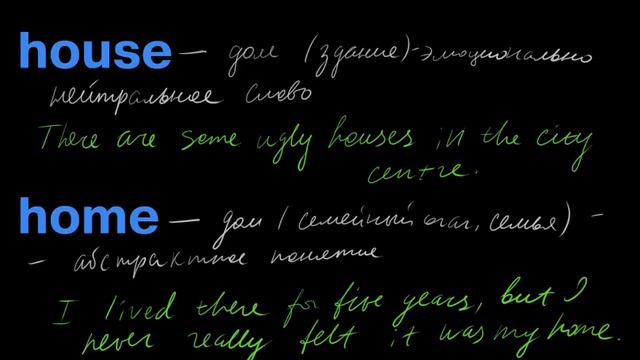 house — дом (здание) - эмоционально
нейтральное слово
There are some ugly houses in the city
centre.
home — дом (семейный очаг, семья) -
- абстрактное понятие
I lived there for five years, but I
never really felt it was my home.